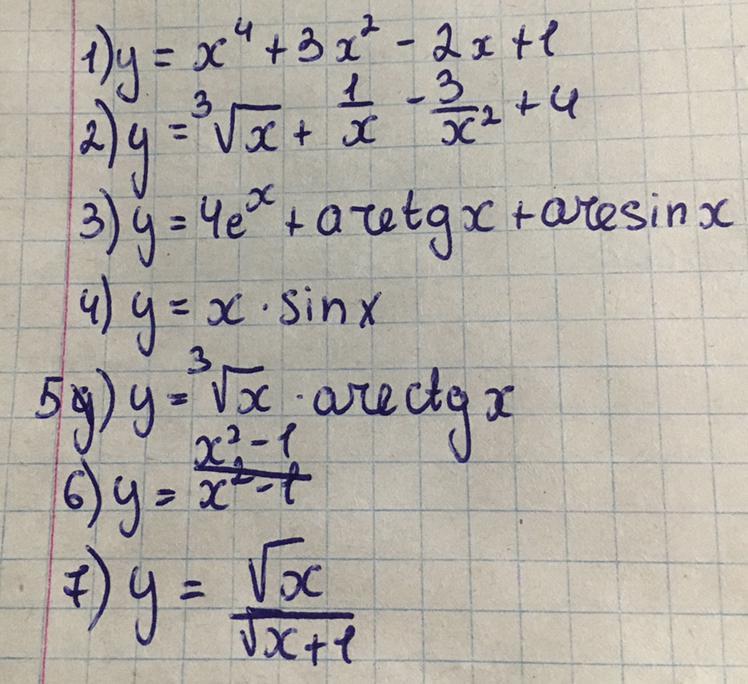 1) y = x⁴ + 3x² - 2x + 1
2) y = ³√x + 1/x - 3/x² + 4
3) y = 4eˣ + arctgx + arcsinx
4) y = x · sinx
5) y = ³√x · arcctgx
6) y = (x²-1)/(x²-1)
7) y = √x/(√x+1)